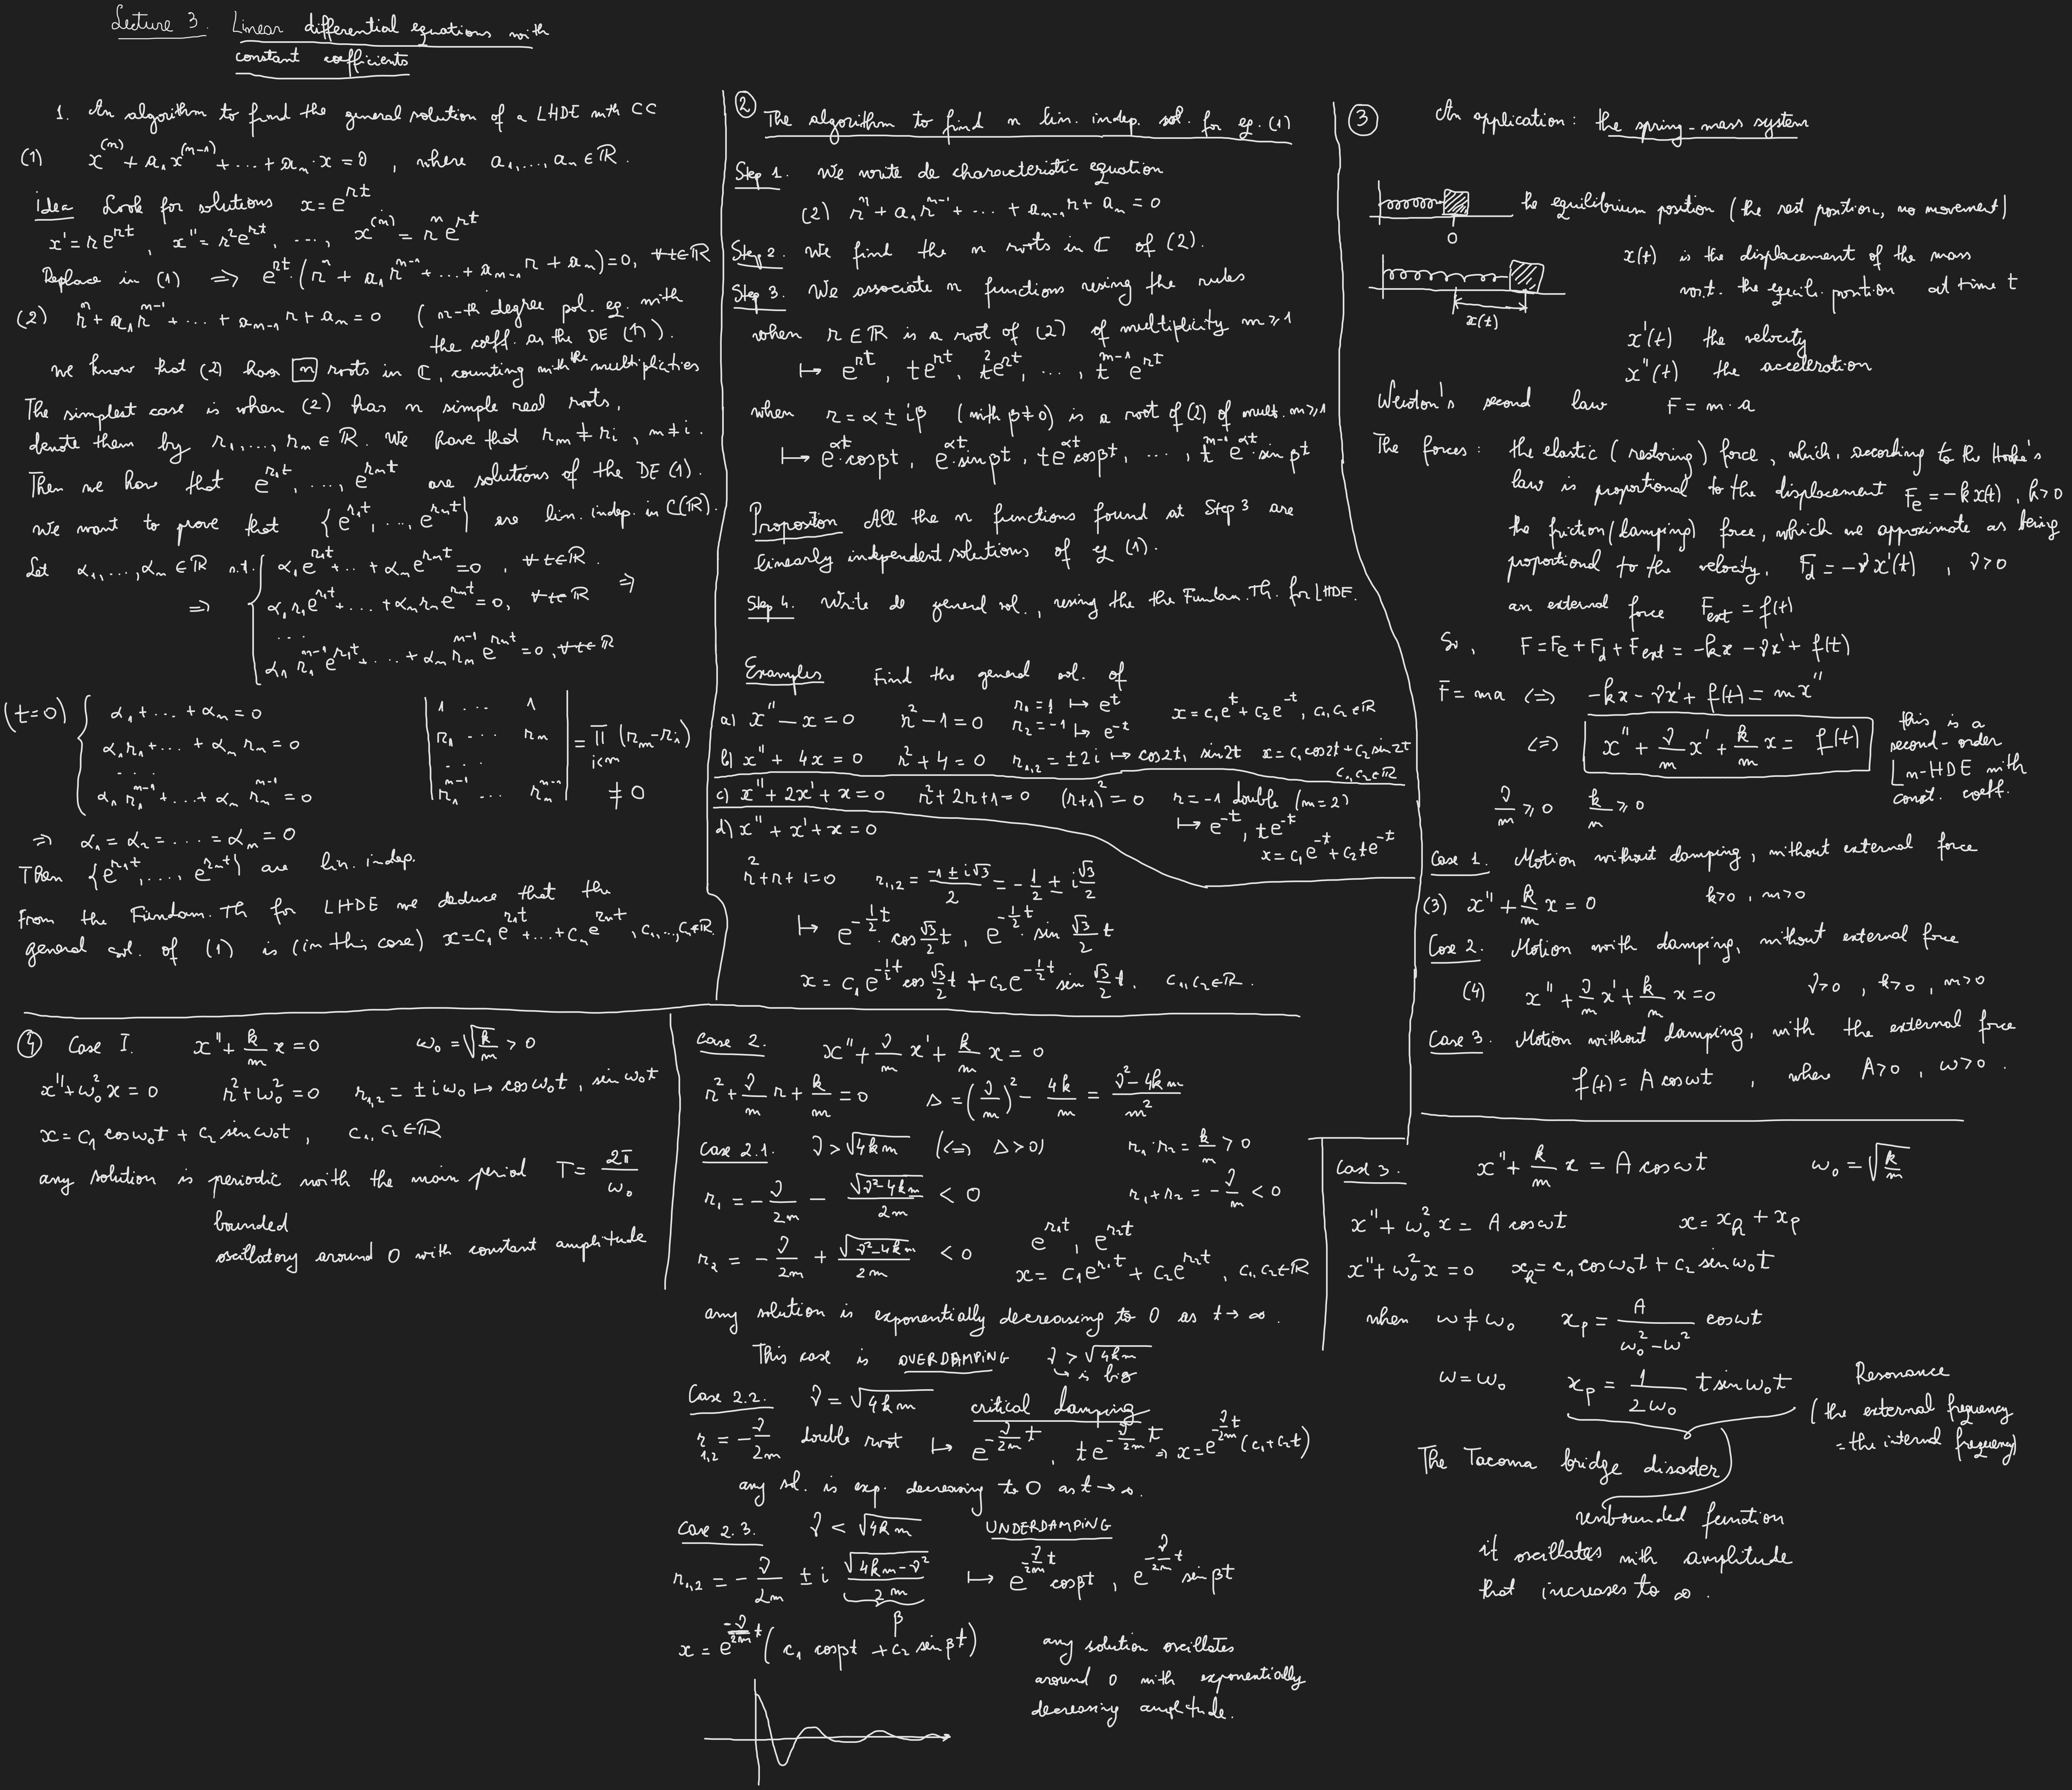 Lecture 3. Linear differential equations with
constant coefficients
1. An algorithm to find the general solution of a LHDE with CC
(1) x^(n) + a₁x^(n-1) + ... + aₙ·x = 0 , where a₁,...,aₙ ∈ ℝ.
idea Look for solutions x = e^{rt}
x' = r e^{rt} , x'' = r²e^{rt} , ..., x^(n) = rⁿ e^{rt}
Replace in (1) ⇒ e^{rt}·(rⁿ + a₁r^{n-1} + ... + a_{n-1}r + aₙ) = 0, ∀t∈ℝ
(2) rⁿ + a₁r^{n-1} + ... + a_{n-1}r + aₙ = 0 ( n-th degree pol. eq. with
the coeff. as the DE (1) ).
we know that (2) has n roots in ℂ, counting with the multiplicities
The simplest case is when (2) has n simple real roots,
denote them by r₁,...,rₙ ∈ ℝ. We have that rₘ ≠ rᵢ , m≠i.
Then we have that e^{r₁t}, ..., e^{rₙt} are solutions of the DE (1).
We want to prove that {e^{r₁t}, ..., e^{rₙt}} are lin. indep. in C(ℝ).
Let α₁,...,αₙ ∈ ℝ s.t. { α₁e^{r₁t} + ... + αₙe^{rₙt} = 0 , ∀t∈ℝ.
⇒ α₁r₁e^{r₁t} + ... + αₙrₙe^{rₙt} = 0, ∀t∈ℝ ⇒
...
α₁r₁^{n-1}e^{r₁t} + ... + αₙrₙ^{n-1}e^{rₙt} = 0, ∀t∈ℝ
(t=0) { α₁ + ... + αₙ = 0 | 1 ... 1 |
α₁r₁ + ... + αₙrₙ = 0 | r₁ ... rₙ | = ∏_{i<m} (rₘ - rᵢ)
... ...
α₁r₁^{n-1} + ... + αₙrₙ^{n-1} = 0 | r₁^{n-1} ... rₙ^{n-1} | ≠ 0
⇒ α₁ = α₂ = .... = αₙ = 0
Then {e^{r₁t}, ..., e^{rₙt}} are lin. indep.
From the Fundam. Th for LHDE we deduce that the
general sol. of (1) is (in this case) x = c₁e^{r₁t} + ... + cₙe^{rₙt}, c₁,...,cₙ∈ℝ.
② The algorithm to find n lin. indep. sol. for eq. (1)
Step 1. We write de characteristic equation
(2) rⁿ + a₁r^{n-1} + ... + a_{n-1}r + aₙ = 0
Step 2. We find the n roots in ℂ of (2).
Step 3. We associate n functions using the rules
when r ∈ ℝ is a root of (2) of multiplicity m ≥ 1
↦ e^{rt}, te^{rt}, t²e^{rt}, ..., t^{m-1}e^{rt}
when r = α ± iβ (with β≠0) is a root of (2) of mult. m≥1
↦ e^{αt}·cosβt, e^{αt}·sinβt, te^{αt}cosβt, ..., t^{m-1}e^{αt}·sin βt
Propositon All the n functions found at Step 3 are
linearly independent solutions of eq (1).
Step 4. Write de general sol., using the the Fundam. Th. for LHDE.
Examples Find the general sol. of
a) x'' - x = 0 r² - 1 = 0 r₁ = 1 ↦ e^t x = c₁e^t + c₂e^{-t}, c₁,c₂∈ℝ
r₂ = -1 ↦ e^{-t}
b) x'' + 4x = 0 r² + 4 = 0 r₁,₂ = ±2i ↦ cos2t, sin2t x = c₁cos2t + c₂sin2t
c₁,c₂∈ℝ
c) x'' + 2x' + x = 0 r² + 2r + 1 = 0 (r+1)² = 0 r = -1 double (m=2)
↦ e^{-t}, te^{-t}
x = c₁e^{-t} + c₂te^{-t}
d) x'' + x' + x = 0
r² + r + 1 = 0 r₁,₂ = (-1 ± i√3)/2 = -1/2 ± i√3/2
↦ e^{-1/2 t}·cos √3/2 t, e^{-1/2 t}·sin √3/2 t
x = c₁e^{-1/2 t} cos √3/2 t + c₂e^{-1/2 t} sin √3/2 t. c₁,c₂∈ℝ.
③ An application: the spring-mass system
the equilibrium position (the rest position, no movement)
0
x(t) is the displacement of the mass
w.r.t. the equil. position at time t
x(t)
x'(t) the velocity
x''(t) the acceleration
Newton's second law F = m·a
The forces: the elastic (restoring) force, which, according to the Hooke's
law is proportional to the displacement Fe = -kx(t), k>0
the friction (damping) force, which we approximate as being
proportional to the velocity, Fd = -νx'(t) , ν>0
an external force Fext = f(t)
So, F = Fe + Fd + Fext = -kx - νx' + f(t)
F = ma ⇔ -kx - νx' + f(t) = mx''
⇔ x'' + ν/m x' + k/m x = f(t) this is a
second-order
Ln-HDE with
const. coeff.
ν/m ≥ 0 k/m ≥ 0
Case 1. Motion without damping, without external force
(3) x'' + k/m x = 0 k>0, m>0
Case 2. Motion with damping, without external force
(4) x'' + ν/m x' + k/m x = 0 ν>0 , k>0 , m>0
Case 3. Motion without damping, with the external force
f(t) = A cosωt , where A>0 , ω>0.
④ Case I. x'' + k/m x = 0 ω₀ = √(k/m) > 0
x'' + ω₀²x = 0 r² + ω₀² = 0 r₁,₂ = ±iω₀ ↦ cosω₀t, sinω₀t
x = c₁cosω₀t + c₂sinω₀t, c₁,c₂∈ℝ
any solution is periodic with the main period T = 2π/ω₀
bounded
oscillatory around 0 with constant amplitude
Case 2. x'' + ν/m x' + k/m x = 0
r² + ν/m r + k/m = 0 Δ = (ν/m)² - 4k/m = (ν² - 4km)/m²
Case 2.1. ν > √4km (⇔ Δ>0) r₁·r₂ = k/m > 0
r₁ = -ν/2m - √(ν²-4km)/2m < 0 r₁+r₂ = -ν/m < 0
r₂ = -ν/2m + √(ν²-4km)/2m < 0 e^{r₁t}, e^{r₂t}
x = c₁e^{r₁t} + c₂e^{r₂t}, c₁,c₂∈ℝ
any solution is exponentially decreasing to 0 as t→∞.
This case is OVERDAMPING ν > √4km
↳ is big
Case 2.2. ν = √4km critical damping
r₁,₂ = -ν/2m double root ↦ e^{-ν/2m t}, te^{-ν/2m t} ⇒ x = e^{-ν/2m t}(c₁+c₂t)
any sol. is exp. decreasing to 0 as t→∞.
Case 2.3. ν < √4km UNDERDAMPING
r₁,₂ = -ν/2m ± i √(4km-ν²)/2m ↦ e^{-ν/2m t}cosβt, e^{-ν/2m t}sinβt
β
x = e^{-ν/2m t}(c₁ cosβt + c₂ sinβt) any solution oscillates
around 0 with exponentially
decreasing amplitude.
Case 3. x'' + k/m x = A cosωt ω₀ = √(k/m)
x'' + ω₀²x = A cosωt x = xₕ + xₚ
x'' + ω₀²x = 0 xₕ = c₁cosω₀t + c₂sinω₀t
when ω ≠ ω₀ xₚ = A/(ω₀²-ω²) cosωt
ω = ω₀ xₚ = 1/(2ω₀) t sinω₀t Resonance
(the external frequency
= the internal frequency)
The Tacoma bridge disaster
unbounded function
it oscillates with amplitude
that increases to ∞.